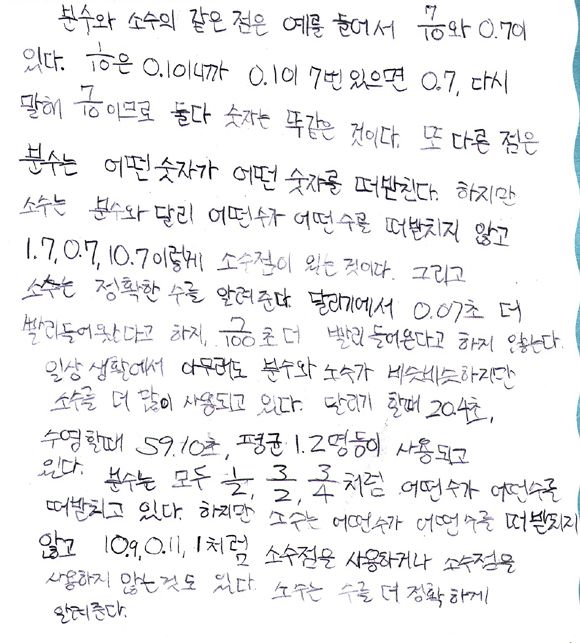 분수와 소수의 같은 점은 예를 들어서 7/10와 0.7이
있다. 1/10은 0.1이니까 0.1이 7번 있으면 0.7, 다시
말해 7/10이므로 둘다 숫자는 똑같은 것이다. 또 다른 점은
분수는 어떤 숫자가 어떤 숫자를 떠받친다. 하지만
소수는 분수와 달리 어떤수가 어떤수를 떠받치지 않고
1.7, 0.7, 10.7 이렇게 소수점이 있는 것이다. 그리고
소수는 정확한 수를 알려준다. 달리기에서 0.07초 더
빨리들어왔다고 하지, 7/100초 더 빨리 들어온다고 하지 않는다.
일상 생활에서 아무래도 분수와 소수가 비슷비슷하지만
소수를 더 많이 사용되고 있다. 달리기 할때 20.4초,
수영할때 59.10초, 평균 1.2명등이 사용되고
있다. 분수는 모두 1/2, 3/2, 3/4처럼 어떤수가 어떤수를
떠받치고 있다. 하지만 소수는 어떤수가 어떤수를 떠받치지
않고 10.9, 0.11, 1처럼 소수점을 사용하거나 소수점을
사용하지 않는것도 있다. 소수는 수를 더 정확하게
알려준다.